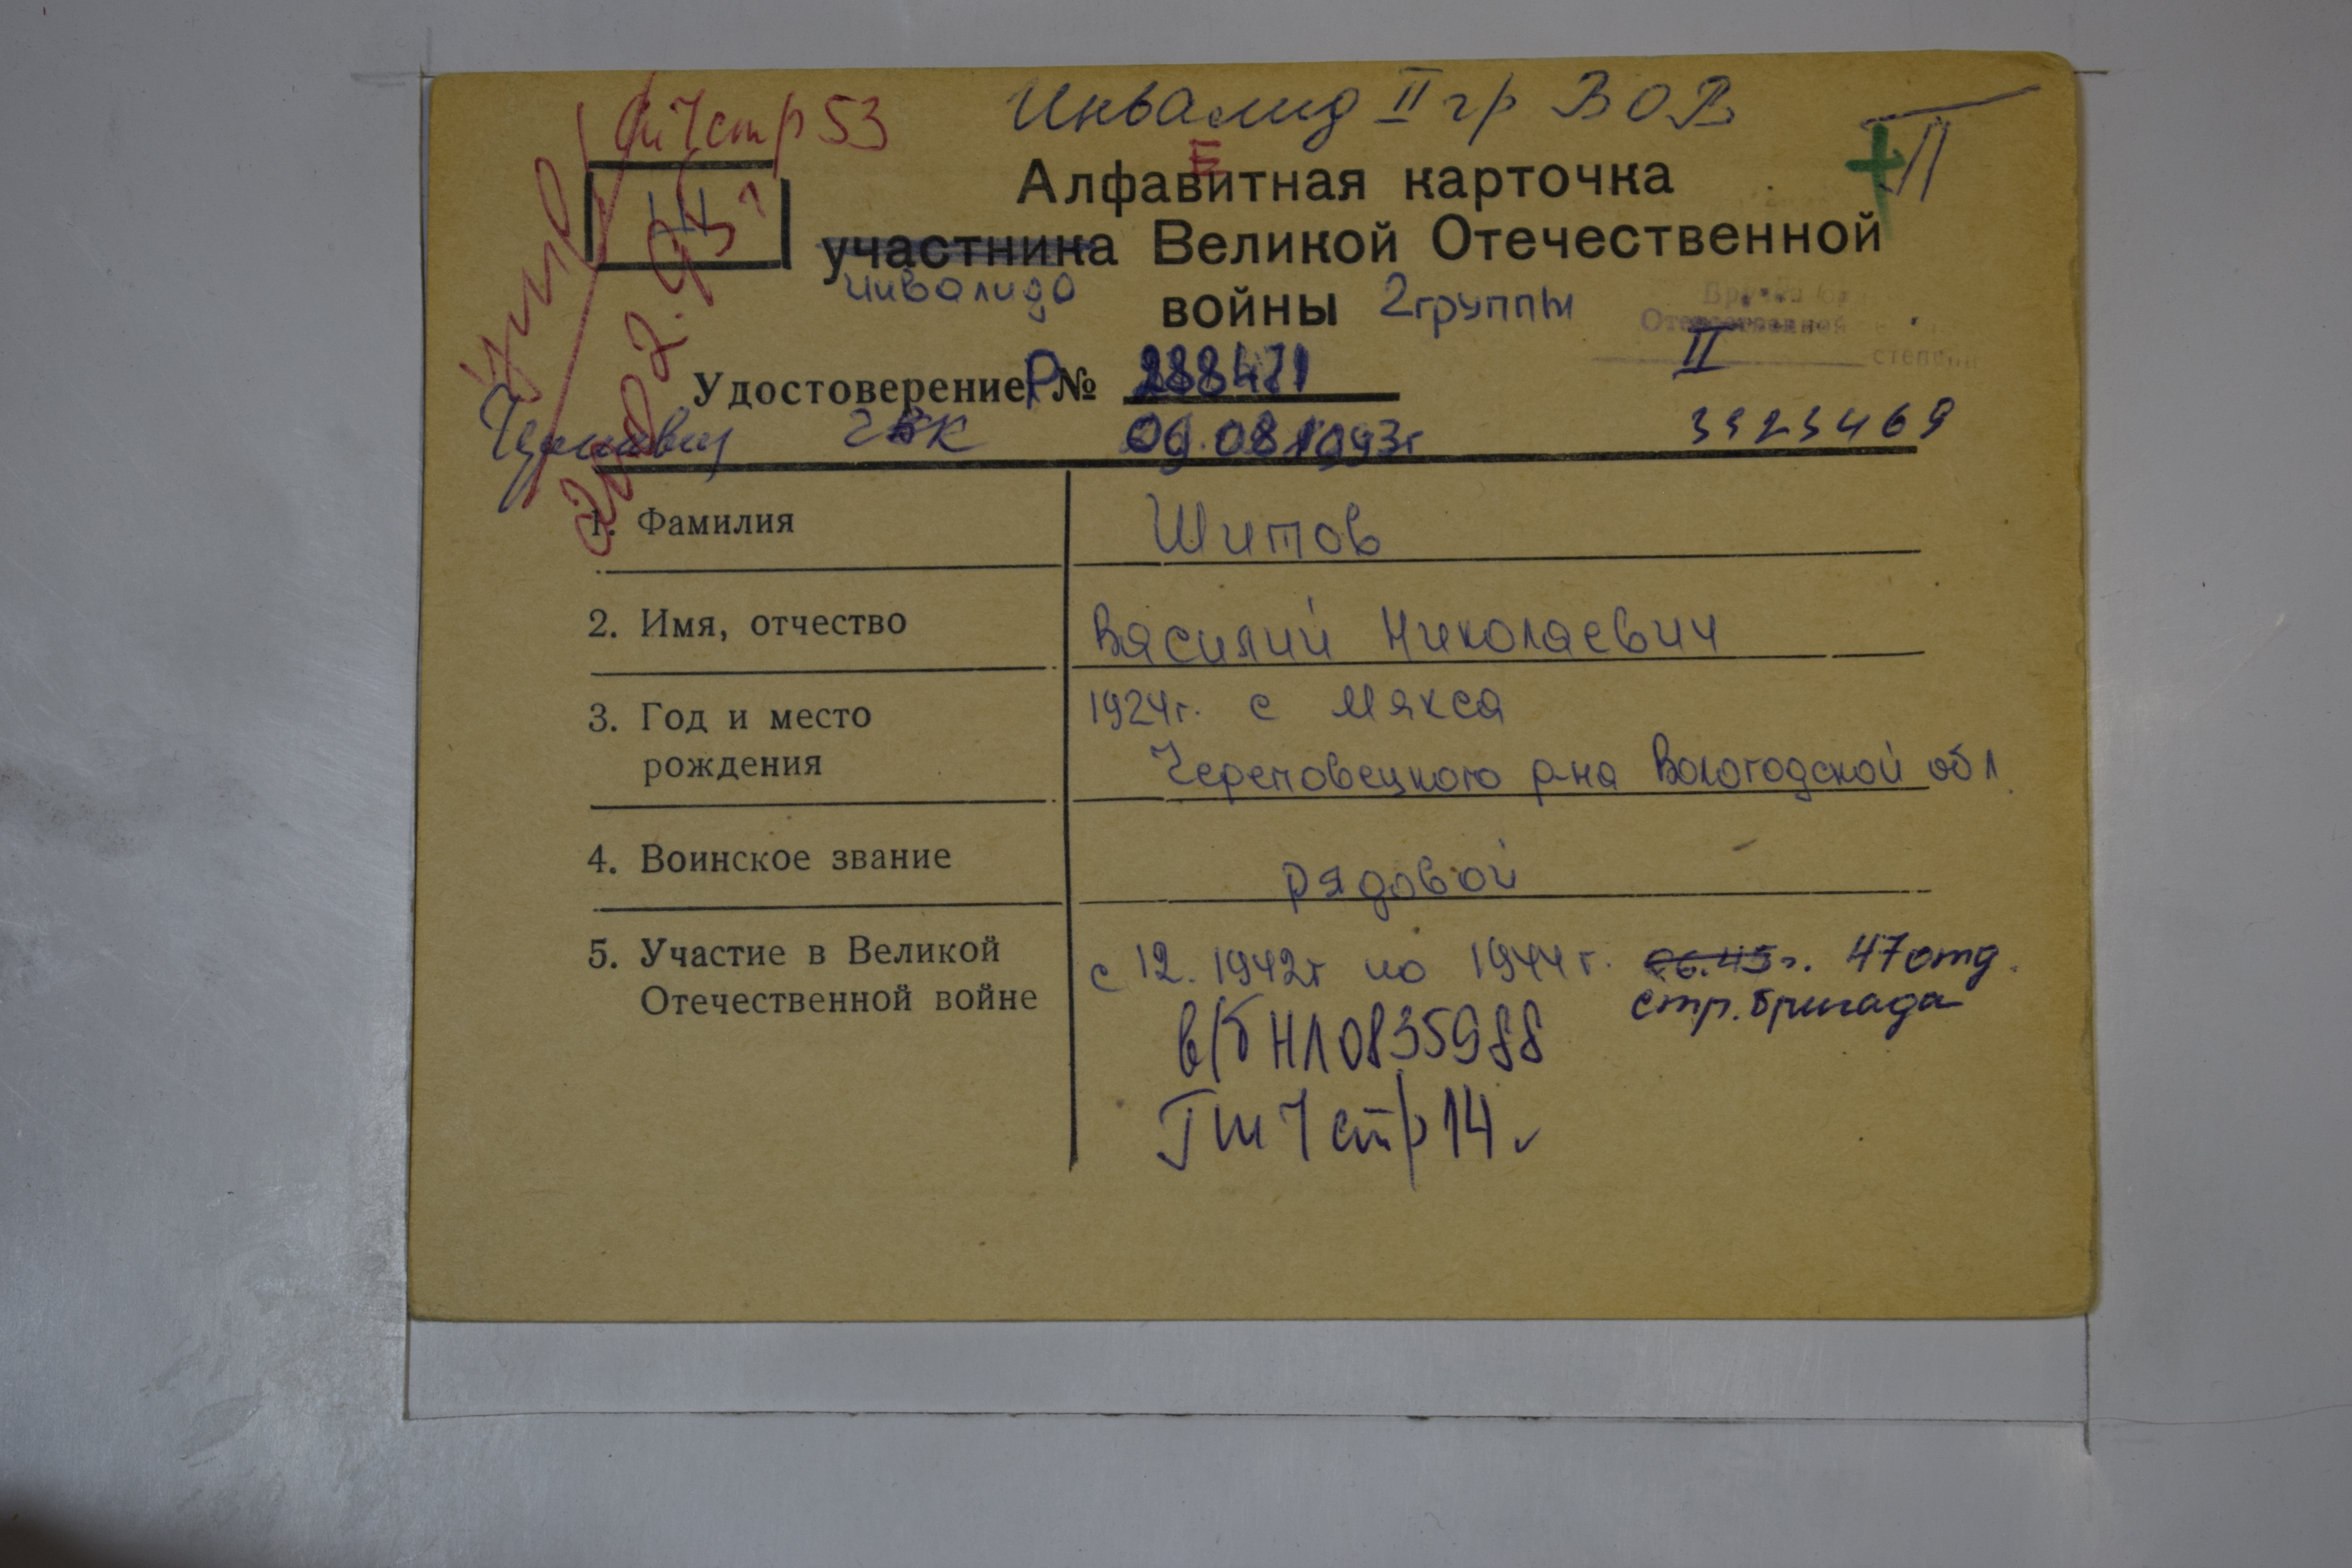 Инвалид II гр ВОВ
стр 53
Е
Алфавитная карточка
участника Великой Отечественной
инвалида
войны 2 группы
II
Удостоверение Р № 288471
09.08.1993г
3923469
1. Фамилия Шитов
2. Имя, отчество Василий Николаевич
3. Год и место 1924г. с Мякса
рождения Череповецкого р-на Вологодской обл.
4. Воинское звание рядовой
5. Участие в Великой с 12. 1942г по 1944г. 06.45г. 47 отд.
Отечественной войне стр. бригада
в/б НЛ 0835988
стр 14